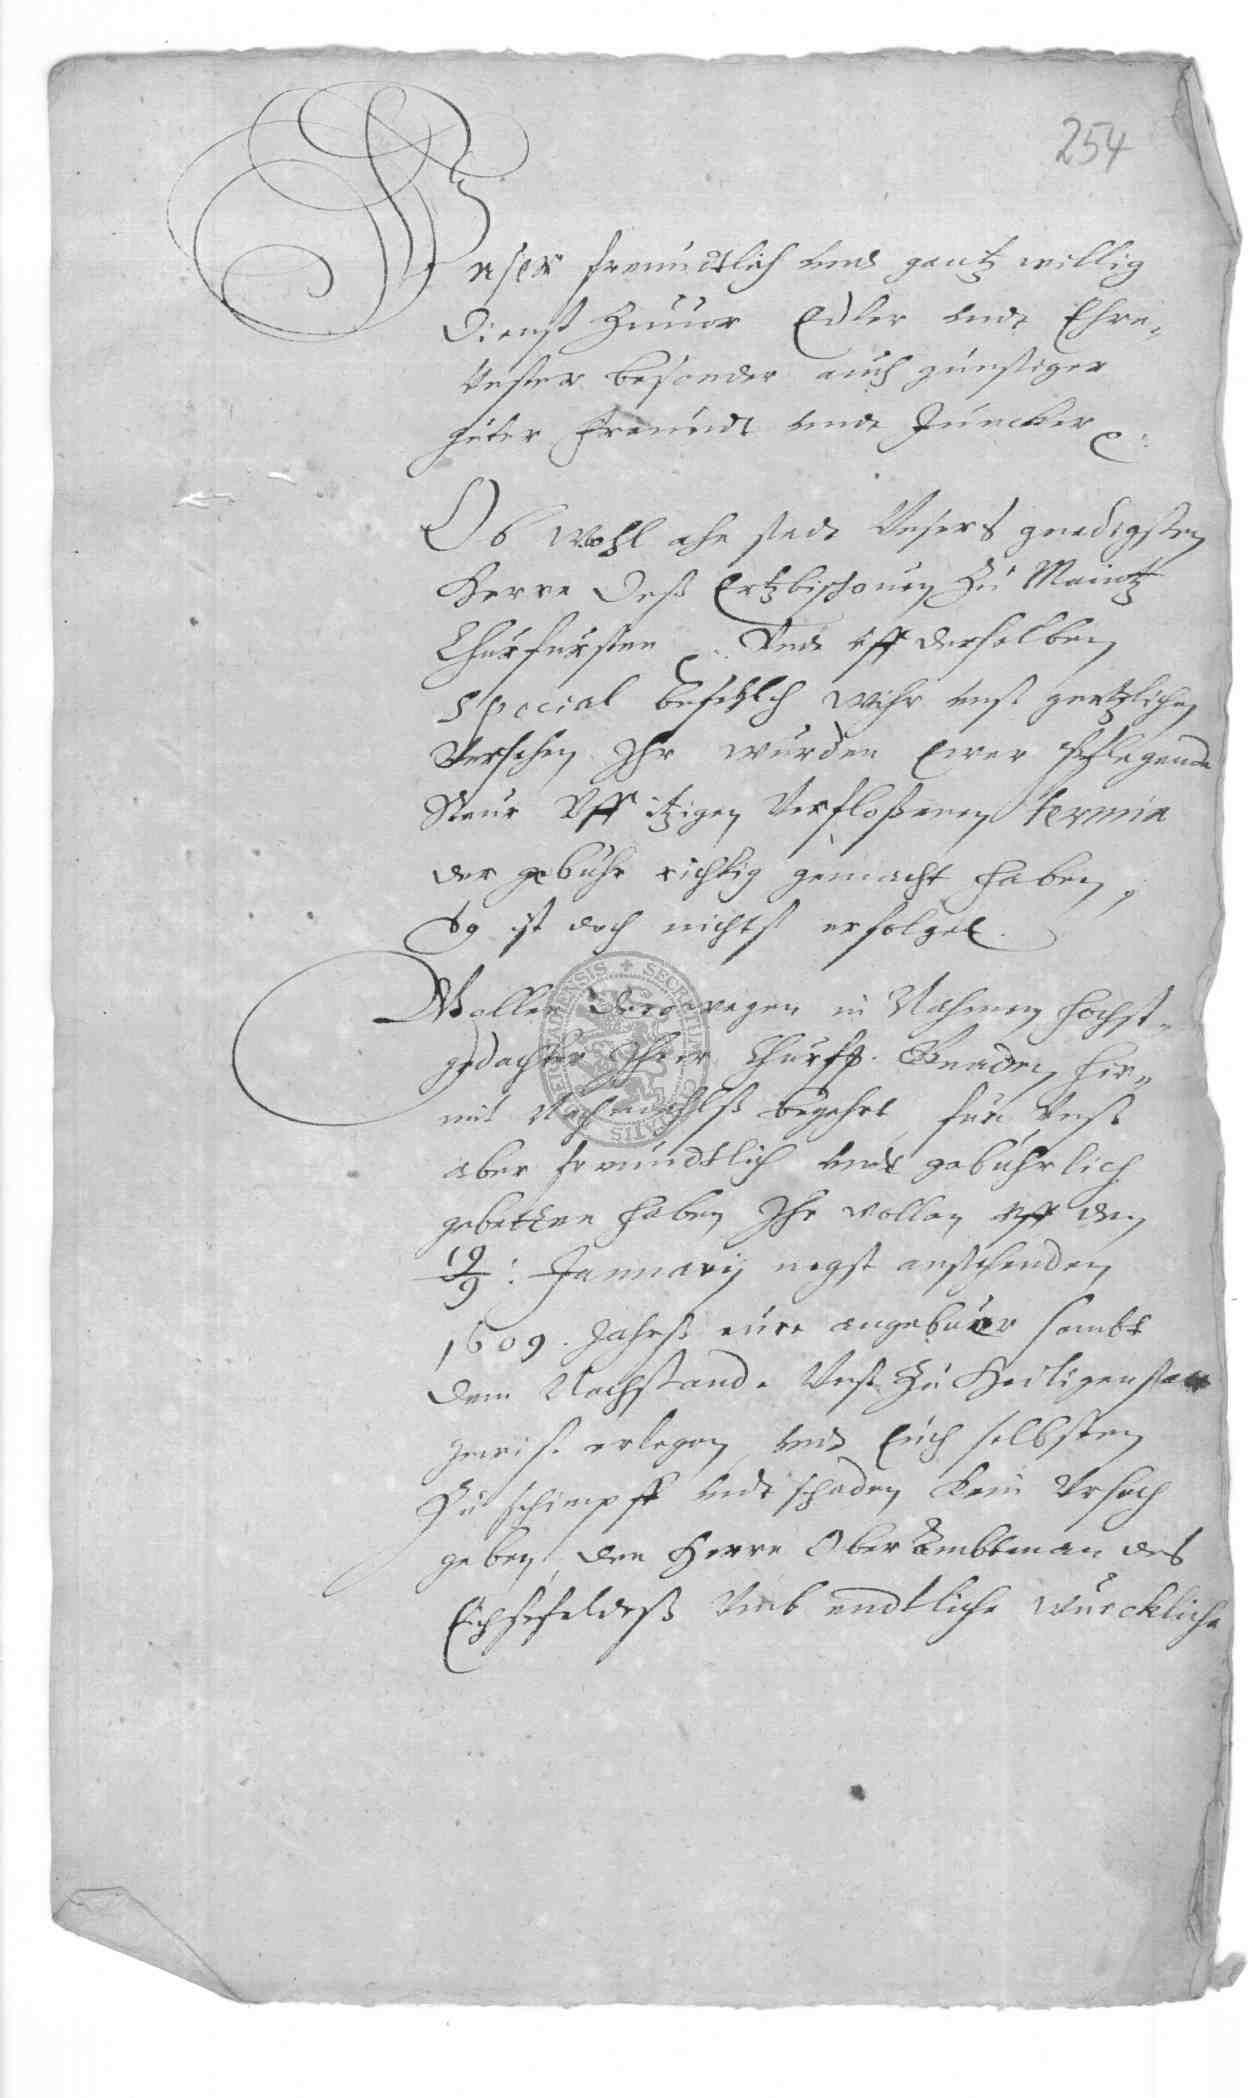 254
Unser freundtlich undt gantz willig
Dienst zuuor Edler undt Ehrn„
Vester besonder auch günstiger
guter Freundt undt Juncker
Ob wohl ahn stadt Unsers gnedigsten
Herrn Deß Ertzbischouen Zu Maintz
Churfursten Undt uff derselben
special befehlch wihr unß gentzlichen
Versehen Ihr wurden Ewer
Steur Uff itzigen Verfloßenen termin
der gebuhr richtig gemacht haben,
So ist doch nichts erfolget.
Wollen Derowegen in Nahmen hochst„
gedachter Ihrer Churff. Gnaden hir„
mit Nachmahlß begehrt für Unß
aber freundtlich undt gebuhrlich
gebetten haben Ihr wollen uff den
19/9: January negst anstehenden
1609. Jahrß eure angebuer sambt
dem Nachstande Unß Zu Heiligenstatt
gewiß erlegen undt Euch selbsten
Zu schimpff undt schaden kein Ursach
geben, den Herrn Ober Ambtman des
Eichsfeldeß Umb endtliche wurckliche
SECRETUM CIVITATIS